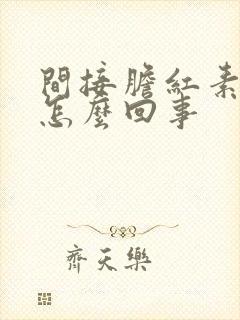 間接膽紅素
怎麼回事
齊天樂